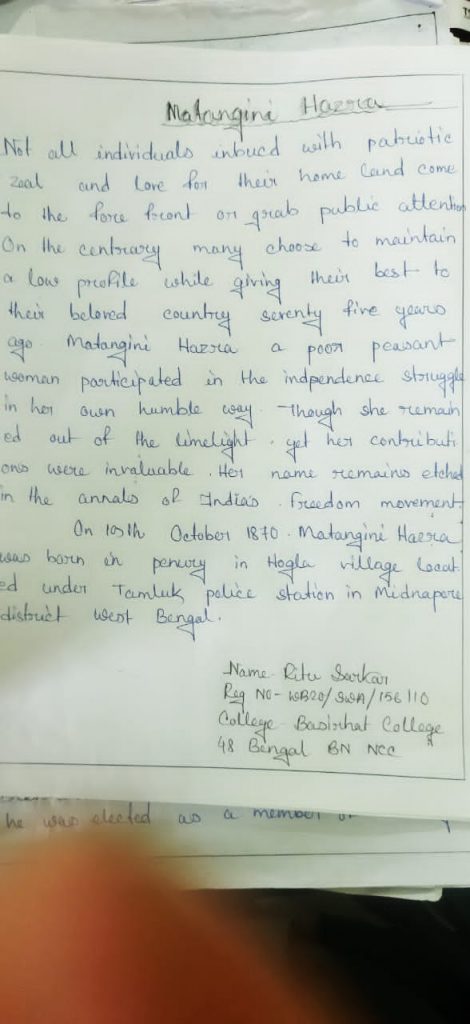 Matangini Hazra
Not all individuals inbued with patriotic
zeal and love for their home land come
to the fore front or grab public attention
On the centrary many choose to maintain
a low profile while giving their best to
their beloved country seventy five years
ago Matangini Hazra a poor peasant
woman participated in the indpendence struggle
in her own humble way. Though she remain
ed out of the limelight. yet her contributi
ons were invaluable. Her name remains etched
in the annals of India's freedom movement
On 19th October 1870. Matangini Hazra
was born in penury in Hogla village locat
ed under Tamluk police station in Midnapore
district west Bengal.
Name- Ritu Sarkar
Reg NO- WB20/SWA/156110
College- Basirhat College
48 Bengal BN NCC
he was elected as a member of